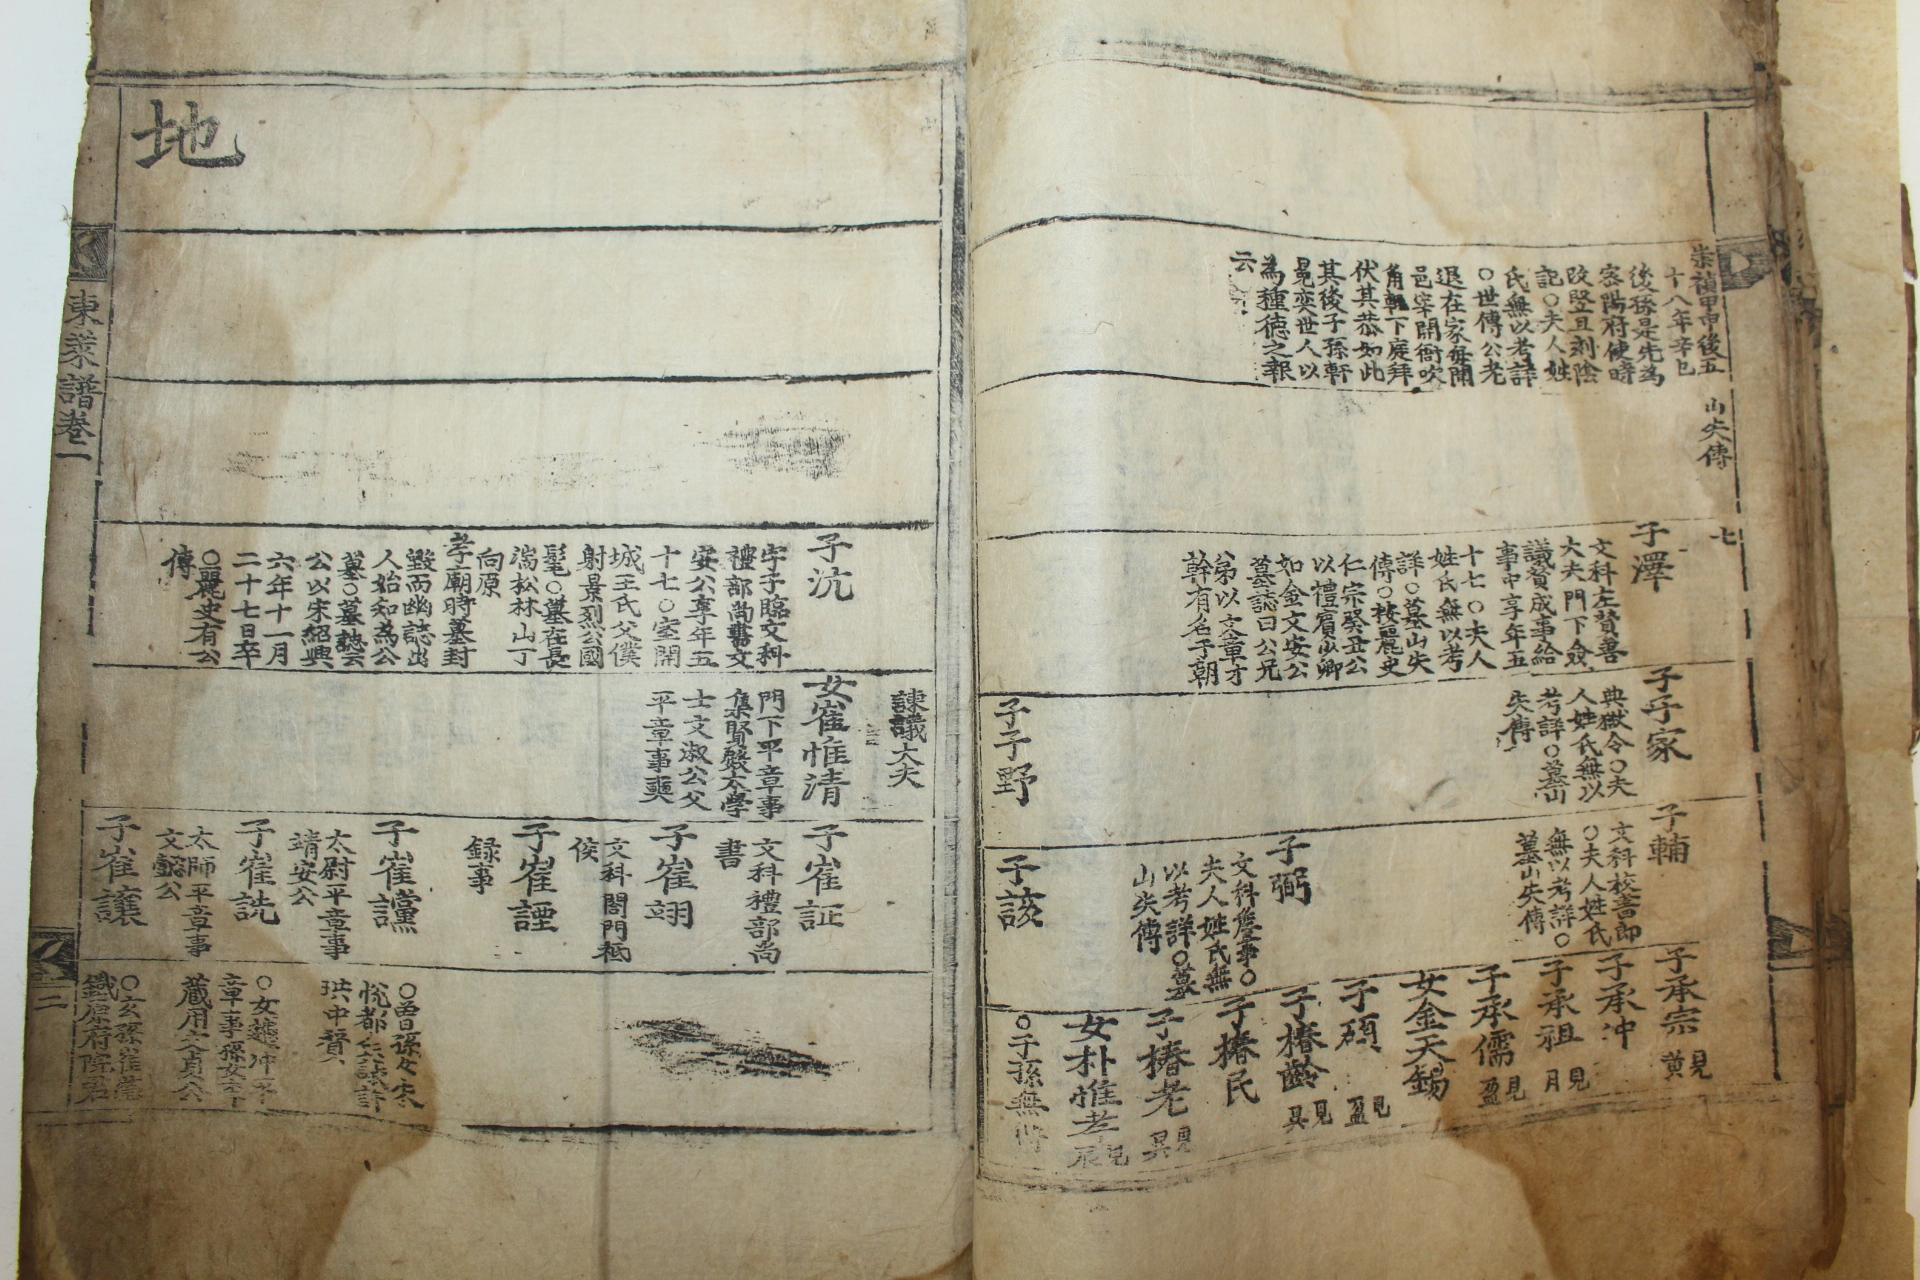 崇禎甲申後五
十八年辛巳
後孫是先為
密陽府使時
改竪且刻陰
記○夫人姓
氏無以考詳
○世傳公老
退在家每聞
邑宰開衙吹
角輒下庭拜
伏其恭如此
其後子孫軒
冕奕世人以
為種德之報
云
山失傳
七
子澤
文科左贊善
大夫門下僉
議贊成事給
事中享年五
十七○夫人
姓氏無以考
詳○墓山失
傳○按麗史
仁宗癸丑公
以禮賓少卿
如金文安公
墓誌曰公兄
弟以文章才
幹有名于朝
子子家
典獄令○夫
人姓氏無以
考詳○墓山
失傳
子子野
子輔
文科校書郎
○夫人姓氏
無以考詳○
墓山失傳
子弼
文科詹事○
夫人姓氏無
以考詳○墓
山失傳
子該
子承宗 見黄
子承冲
子承祖 見月
子承儒 見盈
女金天錫
子碩 見盈
子椿齡 見昃
子椿民
子椿老 見昃
女朴惟孝 見辰
○子孫無傳
地
子沆
字子臨文科
禮部尚書文
安公享年五
十七○室開
城王氏父僕
射景烈公國
髦○墓在長
湍松林山丁
向原
孝廟時墓封
毀而幽誌出
人始知為公
墓○墓誌云
公以宋紹興
六年十一月
二十七日卒
○麗史有公
傳
諫議大夫
女崔惟清
門下平章事
集賢殿太學
士文淑公父
平章事奭
子崔証
文科禮部尚
書
子崔翊
文科閤門祗
侯
子崔諲
録事
子崔讜
太尉平章事
靖安公
子崔詵
太師平章事
文懿公
子崔讓
○曽孫女宋
恱都兵誌詳
珙中贊
○女趙冲平
章事孫女
蔵用文真公
○玄孫崔瑩
鐵原府院君
東萊譜卷一
二